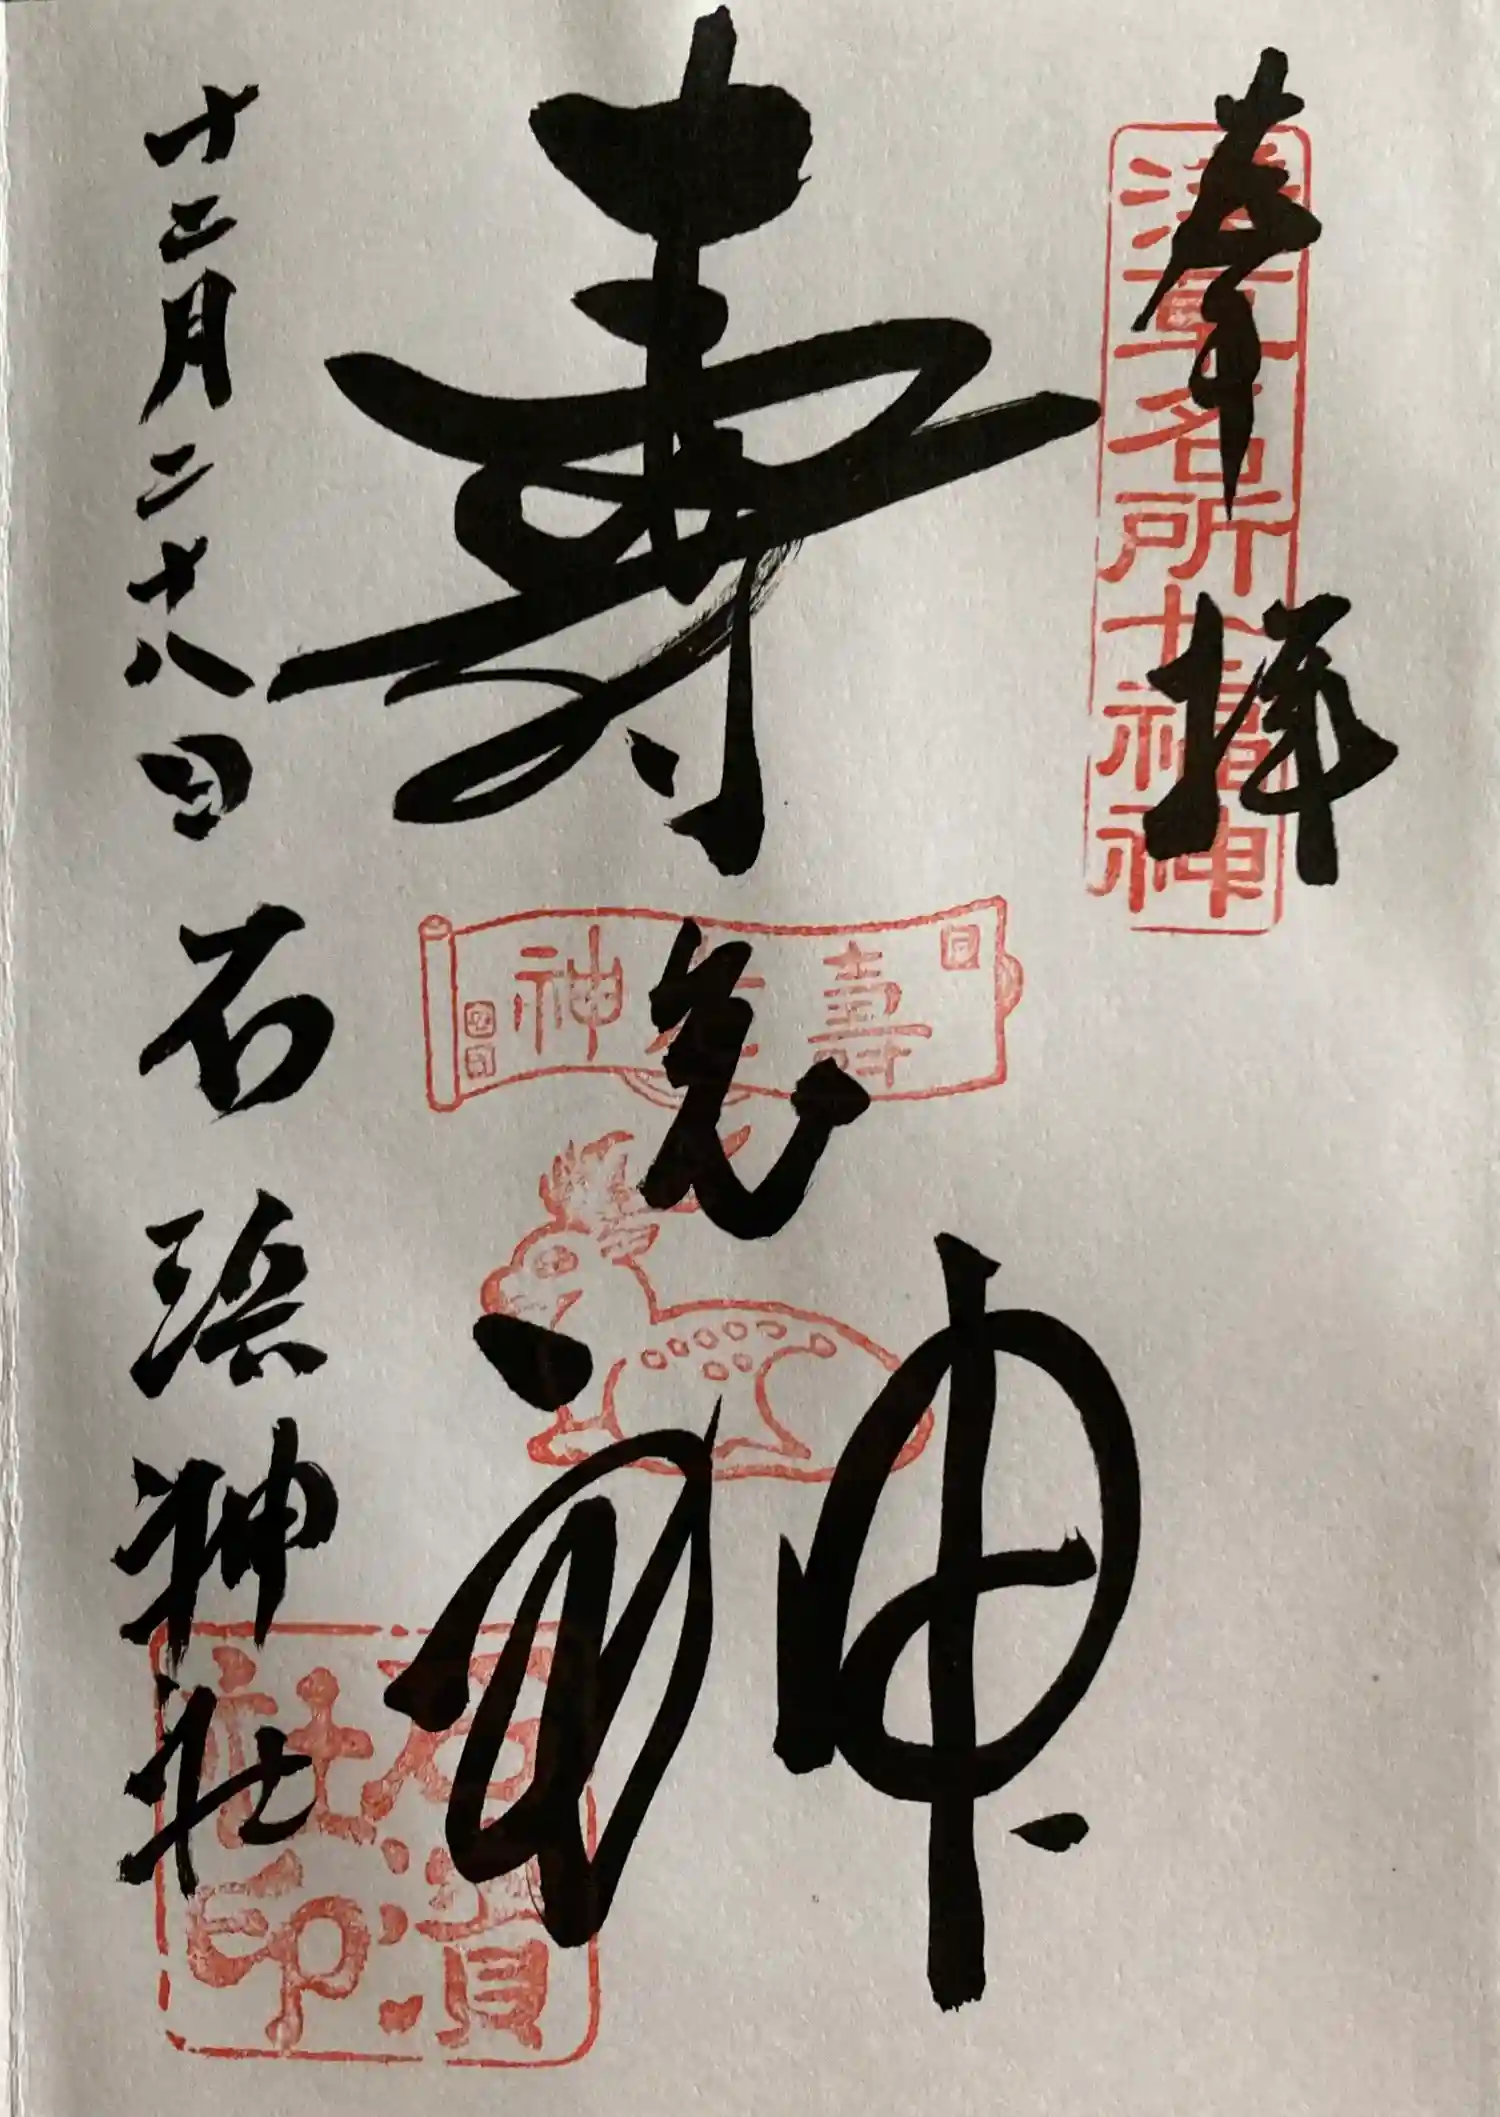 奉拝
浅草名所七福神
寿老神
壽老神
十二月二十八日 石浜神社
石濱社印